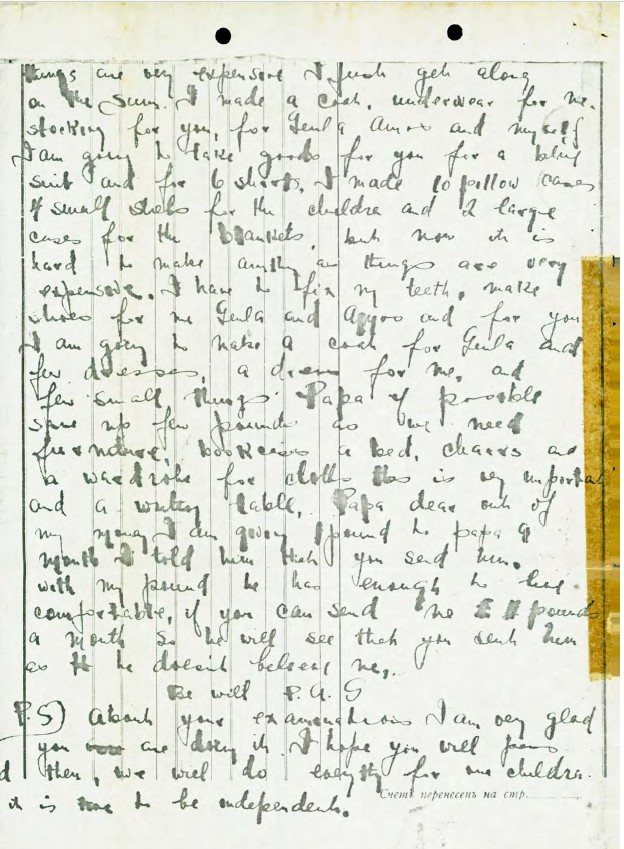 things are very expensive I just get along
on the sum. I made a coat, underwear for me.
stocking for you, for Geula Amos and myself
I am going to take goods for you for a blue
suit and for 6 shorts, I made 10 pillow cases
4 small sheets for the children and 2 large
cases for the blankets, but now it is
hard to make anything as things are very
expensive. I have to fix my teeth, make
shoes for me Geula and Amos and for you
I am going to make a coat for Geula and
few dresses, a dress for me, and
few small things Papa if possible
save up few pounds as we need
furnature, bookcases a bed, chairs and
a wardrobe for clothes this is very important
and a writing table, Papa dear out of
my money I am giving 1 pound to papa a
month I told him that you send him,
with my pound he has enough to live
comfortable, if you can send me pounds
a month so he will see that you sent him
as he doesn't believe me,.
Be well P. A. G
P.S) About your examinations I am very glad
you are doing it. I hope you will pass
then, we will do everything for our children.
it is to be independent.
Счетъ перенесенъ на стр.